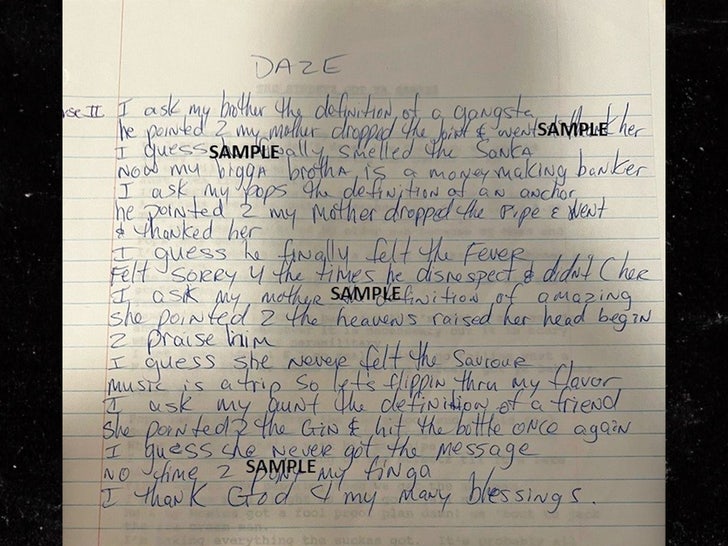 DAZE
rse II I ask my brother the definition of a gangsta
he pointed 2 my mother dropped the joint & went SAMPLE her
I guess SAMPLE ally smelled the Sanka
Now my bigga brotha is a money making banker
I ask my pops the definition of an anchor
he pointed 2 my mother dropped the pipe & went
& thanked her
I guess he finally felt the Fever
Felt SORRY 4 the times he disrespect & didn't C her
I ask my mother SAMPLE definition of amazing
she pointed 2 the heavens raised her head begin
2 praise him
I guess she never felt the Saviour
music is a trip so let's flippin thru my flavor
I ask my aunt the definition of a friend
she pointed 2 the Gin & hit the bottle once again
I guess she never got the message
NO time 2 SAMPLE my finga
I thank God 4 my many blessings.